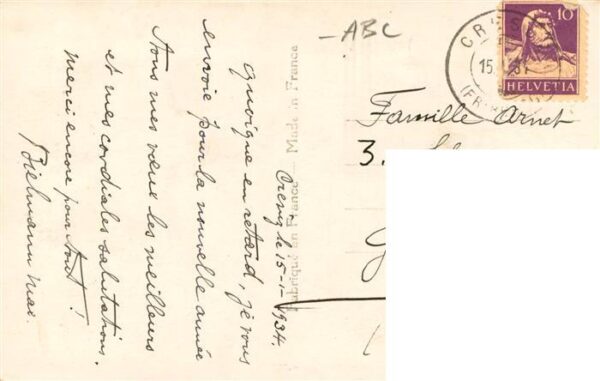 ABC
10
HELVETIA
CR
15.
(FR
Famille Arnet
3.
Fabriqué en France — Made in France
Cressy le 15-1-1934.
quoique en retard, je vous
envoie pour la nouvelle année
Tous mes vœux les meilleurs
et mes cordiales salutations.
merci encore pour tout!
Bielmann